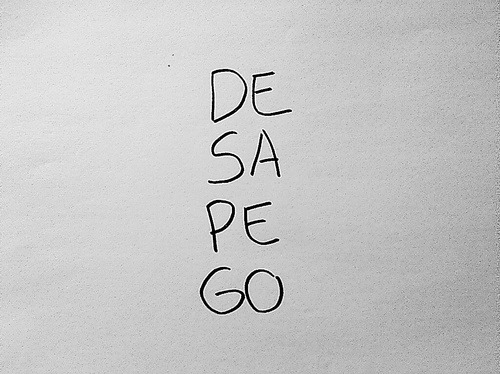 DE
SA
PE
GO